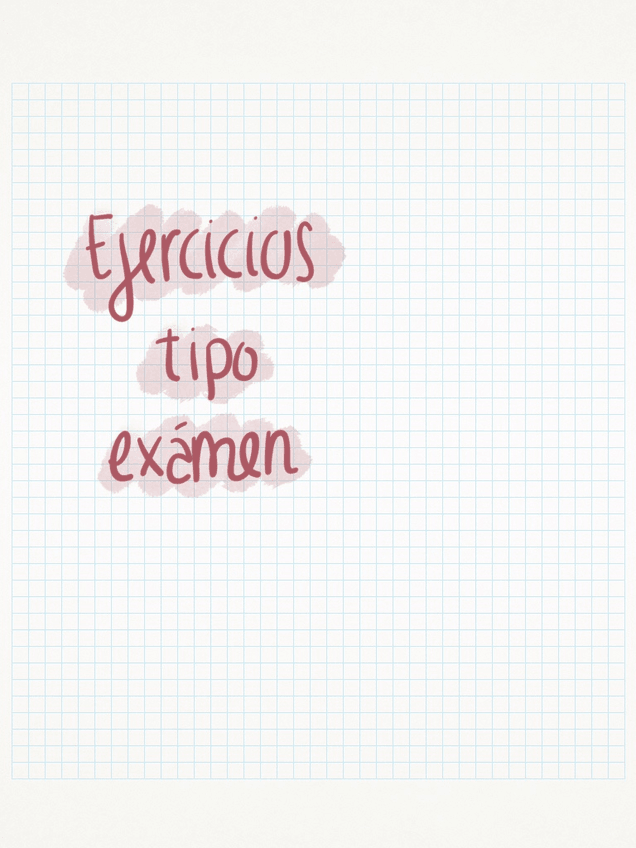 Ejercicios
tipo
exámen